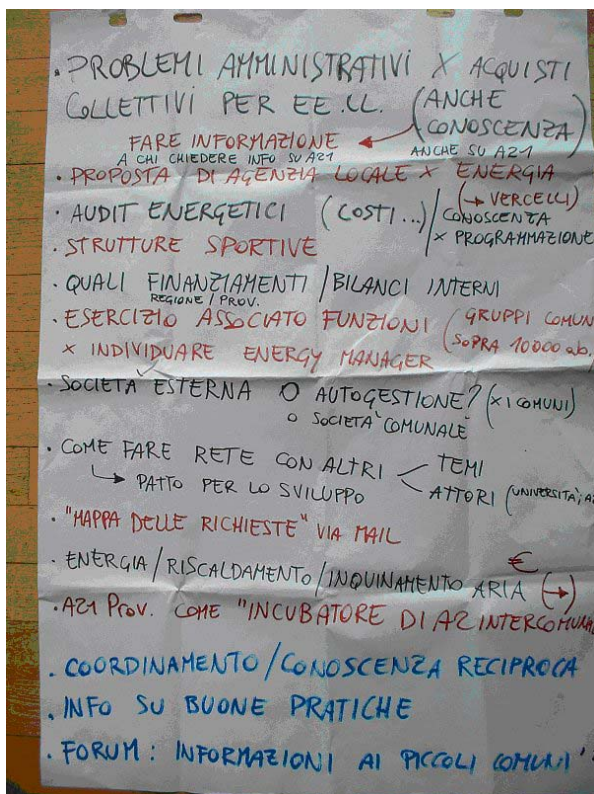 · PROBLEMI AMMINISTRATIVI X ACQUISTI
COLLETTIVI PER EE.LL. (ANCHE
CONOSCENZA)
FARE INFORMAZIONE
A CHI CHIEDERE INFO SU A21 ANCHE SU A21
· PROPOSTA DI AGENZIA LOCALE X ENERGIA
(→ VERCELLI)
· AUDIT ENERGETICI (COSTI...)/CONOSCENZA
X PROGRAMMAZIONE
· STRUTTURE SPORTIVE
· QUALI FINANZIAMENTI/BILANCI INTERNI
REGIONE/PROV.
· ESERCIZIO ASSOCIATO FUNZIONI (GRUPPI COMUN
X INDIVIDUARE ENERGY MANAGER (SOPRA 10000 ab.
· SOCIETÀ ESTERNA O AUTOGESTIONE? (X I COMUNI)
O SOCIETÀ COMUNALE
· COME FARE RETE CON ALTRI < TEMI
↳ PATTO PER LO SVILUPPO ATTORI (UNIVERSITÀ, A
· "MAPPA DELLE RICHIESTE" VIA MAIL
€
· ENERGIA/RISCALDAMENTO/INQUINAMENTO ARIA (→)
· A21 PROV. COME "INCUBATORE DI A21 INTERCOMUNA
· COORDINAMENTO/CONOSCENZA RECIPROCA
· INFO SU BUONE PRATICHE
· FORUM: INFORMAZIONI AI PICCOLI COMUNI